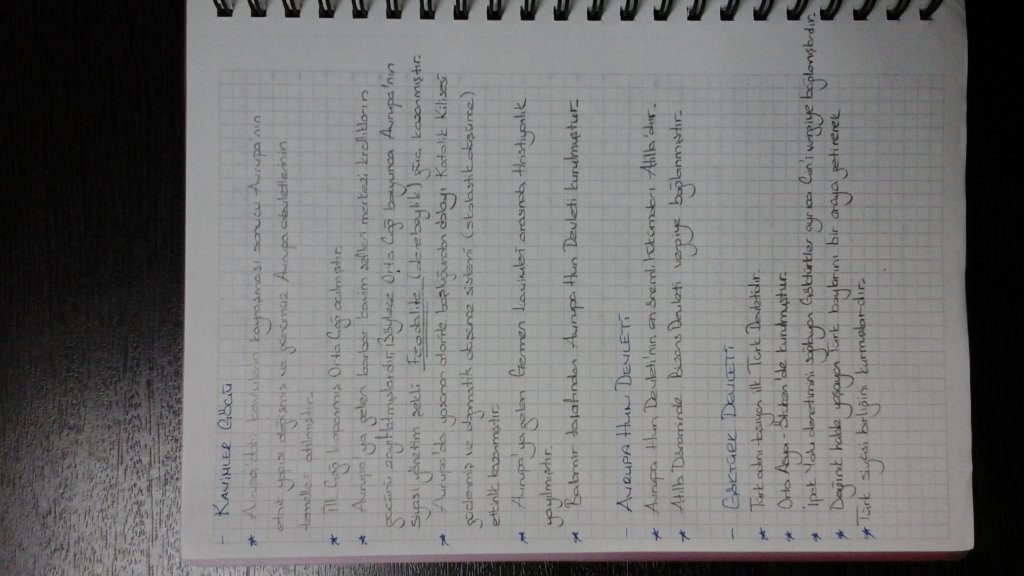 - KAVİMLER GÖÇÜ
* Avrupa'daki kavimlerin kaynaşması sonucu Avrupa'nın
etnik yapısı değişmiş ve günümüz Avrupa devletlerinin
temelleri atılmıştır.
* İlk Çağ kapanmış Orta Çağ açılmıştır.
* Avrupa'ya gelen barbar kavim selleri merkezi krallıkların
gücünü zayıflatmışlardır. Böylece Orta Çağ boyunca Avrupa'nın
siyasi yönetim şekli Feodalite (derebeylik) güç kazanmıştır.
* Avrupa'da yaşanan otorite boşluğundan dolayı Katolik Kilisesi
güçlenmiş ve dogmatik düşünce sistemi (skolastik düşünce)
etkinlik kazanmıştır.
* Avrupa'ya gelen Germen kavimleri arasında Hristiyanlık
yayılmıştır.
* Balamir tarafından Avrupa Hun Devleti kurulmuştur.
- AVRUPA HUN DEVLETİ
* Avrupa Hun Devleti'nin en önemli hükümdarı Atilla'dır.
* Atilla Döneminde Bizans Devleti vergiye bağlanmıştır.
- GÖKTÜRK DEVLETİ
* Türk adını taşıyan ilk Türk Devletidir.
* Orta Asya - Ötüken'de kurulmuştur.
* İpek Yolu denetimini sağlayan Göktürkler ayrıca Çin'i vergiye bağlamışlardır.
* Dağınık halde yaşayan Türk boylarını bir araya getirerek
* Türk siyasi birliğini kurmuşlardır.